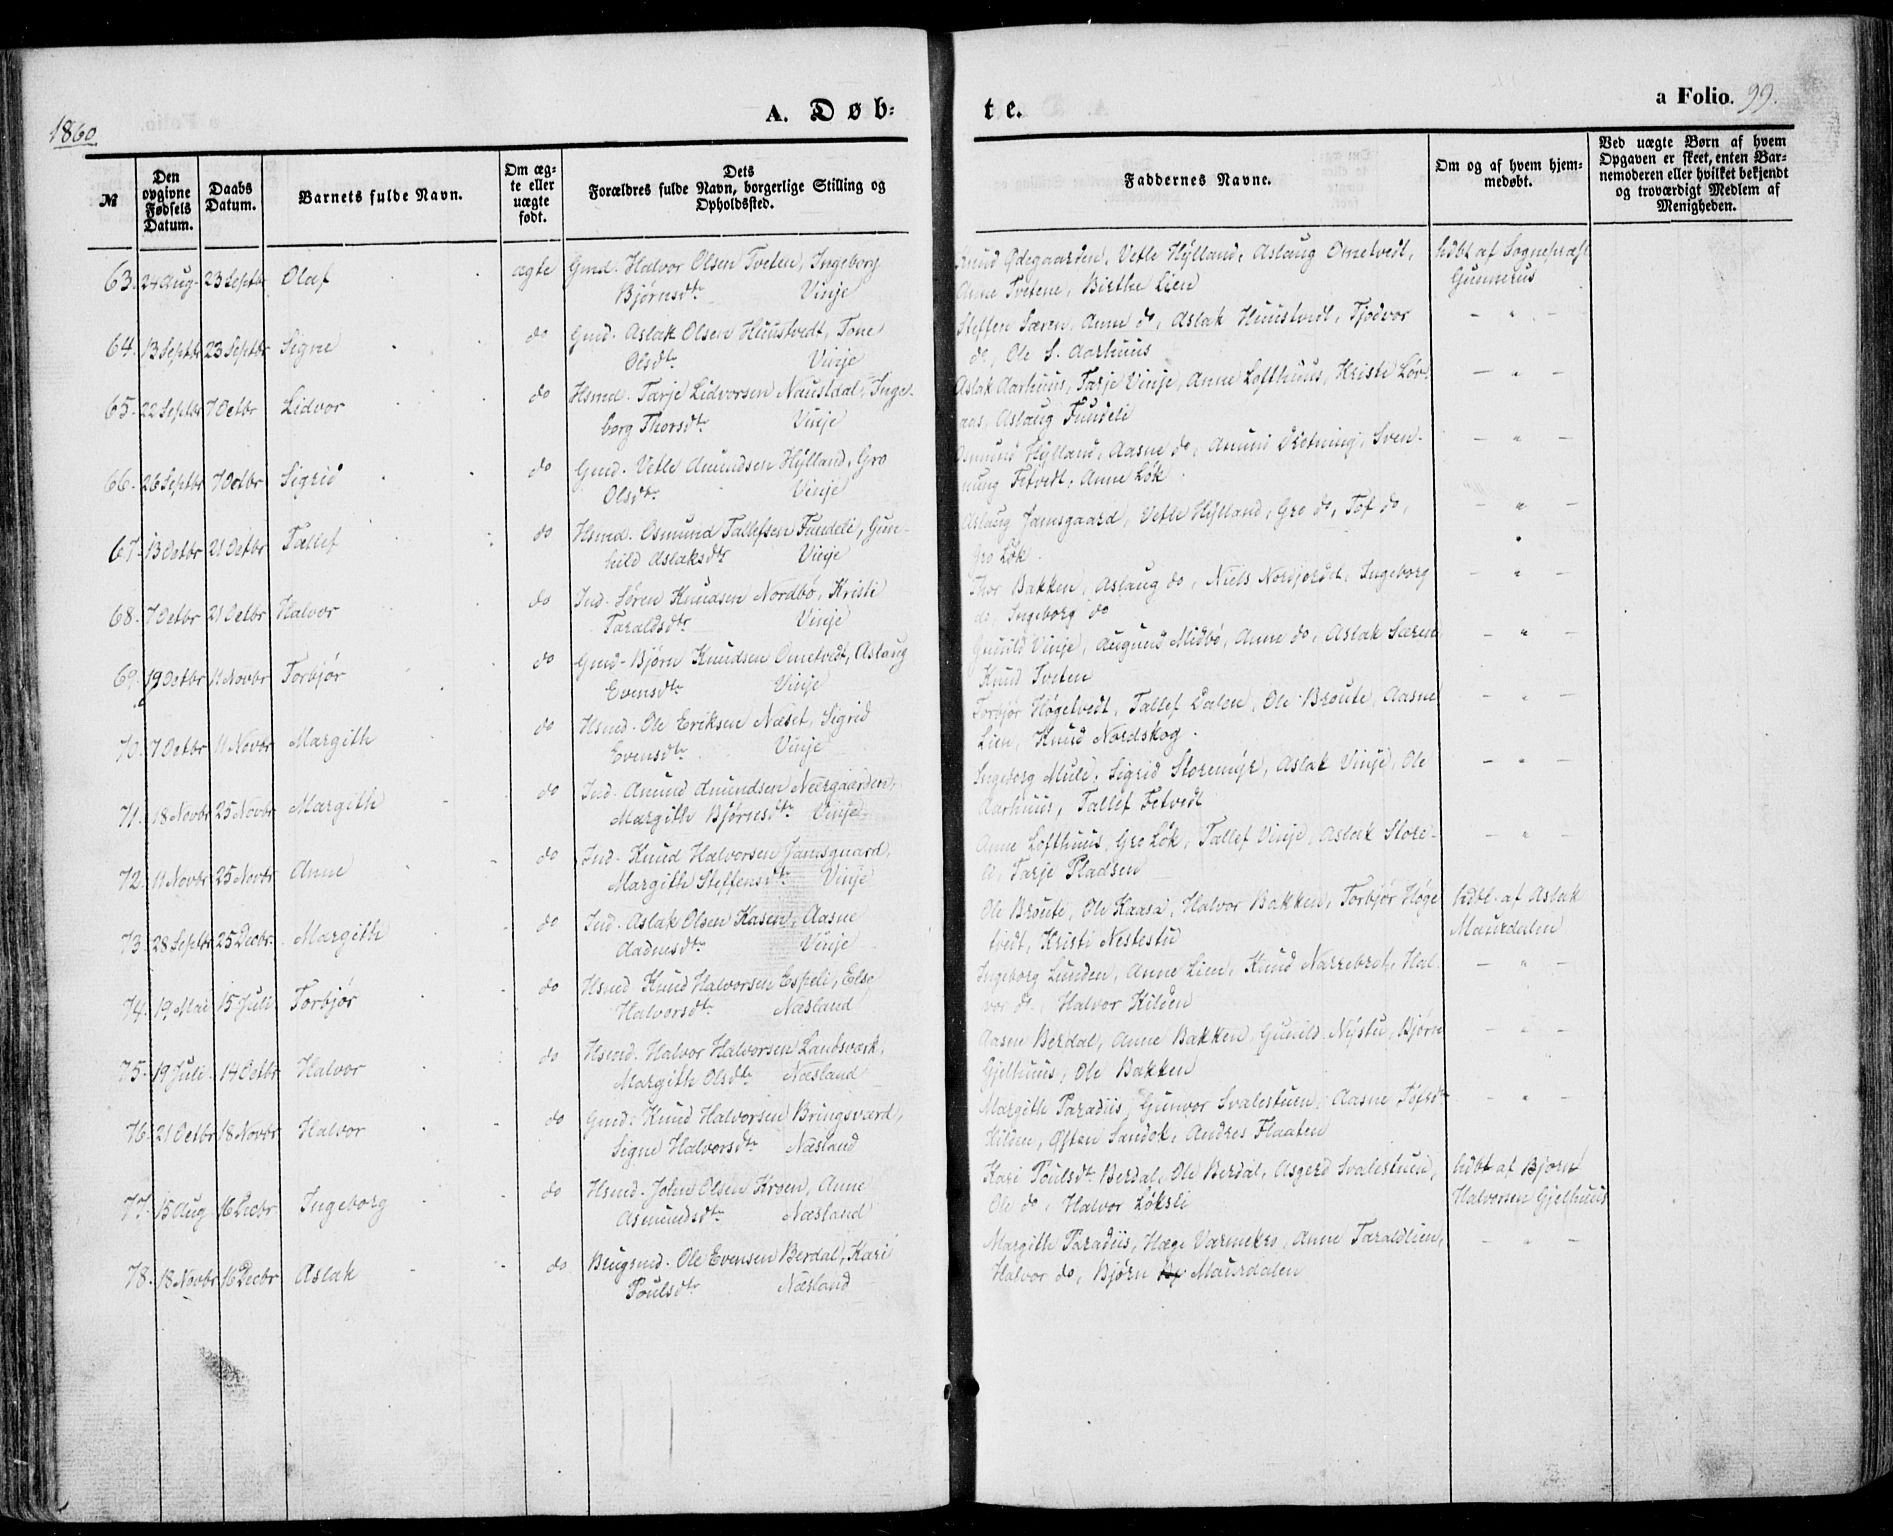 1860
A. Døb-
te.
a Folio. 99.
№
Den opgivne Fødsels Datum.
Daabs Datum.
Barnets fulde Navn.
Om ægte eller uægte født.
Dets Forældres fulde Navn, borgerlige Stilling og Opholdssted.
Faddernes Navne.
Om og af hvem hjemmedøbt.
Ved uægte Børn af hvem Opgaven er skeet, enten Barnemoderen eller hvilket bekjendt og troværdigt Medlem af Menigheden.
63. 24 Aug. 23 Septbr Olaf ægte Gmd. Halvor Olsen Tveten, Ingeborg
Bjørnsdtr Vinje
Knud Ødegaarden, Vetle Hylland, Aslaug Ometvedt,
Anne Tvetene, Birthe Lien
hdbt af Sognepræst
Gunnerus
64. 13 Septbr 23 Septbr Signe do Gmd. Aslak Olsen Huustvedt, Tone
Olsdtr Vinje
Steffen Særen, Anne do, Aslak Huustvedt, Tjodvor
do, Ole S. Aarhuus
— " —
65. 22 Septbr 7 Octbr Lidvor do Hsmd. Tarje Lidvorsen Naustdal, Inge-
borg Thorsdtr Vinje
Aslak Aarhuus, Tarje Vinje, Anne Lofthuus, Kristi Løv-
aas, Aslaug Fundeli
— " —
66. 26 Septbr 7 Octbr Sigrid do Gmd. Vetle Amundsen Hylland, Gro
Olsdtr Vinje
Osmund Hylland, Aasne do, Amund Sletning, Sven-
nung Fetvedt, Anne Løk.
— " —
67. 13 Octbr 21 Octbr Tallef do Hsmd. Osmund Tallefsen Fundeli, Gun-
hild Aslaksdtr Vinje
Aslaug Jamsgaard, Vetle Hylland, Gro do, Tof do,
Gro Løk.
— " —
68. 7 Octbr 21 Octbr Halvor do Ind. Søren Knudsen Nordbø, Kristi
Taraldsdtr Vinje
Thor Bakken, Aslaug do, Niels Nordjordet, Ingeborg
do, Ingeborg do
— " —
69. 19 Octbr 11 Novbr Torbjør do Gmd. Bjørn Knudsen Ometvedt, Aslaug
Evensdtr Vinje
Gunild Vinje, Augund Midbø, Anne do, Aslak Særen,
Knud Tveten
— " —
70. 7 Octbr 11 Novbr Margith do Hsmd. Ole Eriksen Næset, Sigrid
Evensdtr Vinje
Torbjør Høgetvedt, Tallef Dalen, Ole Broute, Aasne
Lien, Knud Nordskog.
— " —
71. 18 Novbr 25 Novbr Margith do Ind. Amund Amundsen Neergaarden,
Margith Bjørnsdtr Vinje
Ingeborg Mule, Sigrid Storemyr, Aslak Vinje, Ole
Aarhuus, Tallef Fetvedt
— " —
72. 11 Novbr 25 Novbr Anne do Ind. Knud Halvorsen Jamsgaard,
Margith Steffensdtr Vinje
Anne Lofthuus, Gro Løk, Tallef Vinje, Aslak Store-
li, Tarje Pladsen
— " —
73. 28 Septbr 25 Decbr. Margith do Ind. Aslak Olsen Kasen, Aasne
Aadnesdtr Vinje
Ole Broute, Ole Kaasa, Halvor Bakken, Torbjør Høge
tvedt, Kristi Nestestu
hdbt. af Aslak
Maurdalen
74. 19. Mai 15 Juli Torbjør do Hsmd Knud Halvorsen Espeli, Else
Halvorsdtr Næsland
Ingeborg Lunden, Anne Lien, Knud Narrebret, Hal-
vor do, Halvor Kilden
— " —
75. 19 Juli. 14 Octbr Halvor do Hsmd. Halvor Halvorsen Landsværk,
Margith Olsdtr Næsland
Aasen Berdal, Anne Bakken, Gunild Nystu, Bjørn
Gjelhuus, Ole Bakken
— " —
76. 21 Octbr 18 Novbr Halvor do Gmd. Knud Halvorsen Bringsværd,
Signe Halvorsdtr Næsland
Margith Paradiis, Gunvor Svalestuen, Aasne Tofsdtr
Kilden, Øften Sandok, Andres Flaaten
— " —
77. 15 Aug 16 Decbr Ingeborg do Hsmd. John Olsen Kroen, Anne
Asmundsdtr Næsland
Kari Poulsdtr Berdal, Ole Berdal, Asgerd Svalestuen,
Ole do, Halvor Løksli
hdbt af Bjørn
Halvorsen Gjelhuus
78. 18 Novbr 16 Decbr Aslak do Brugsmd. Ole Evensen Berdal, Kari
Poulsdtr Næsland
Margith Paradiis, Hæge Varmekro, Anne Taraldlien,
Halvor do, Bjørn Maurdalen
— " —